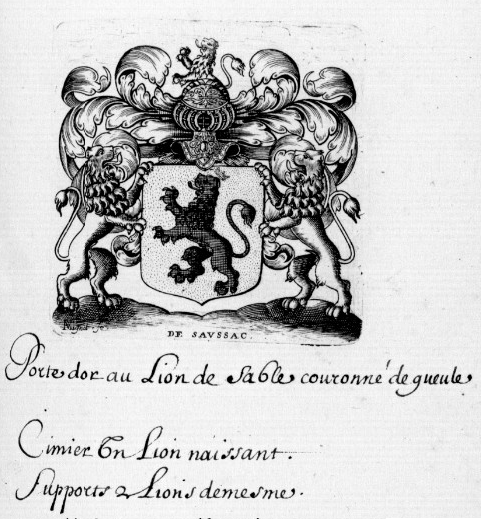 DE SAVSSAC.
Porte dor au Lion de Sable couronné de gueule
Cimier Vn Lion naissant.
Supports 2 Lions demesme.